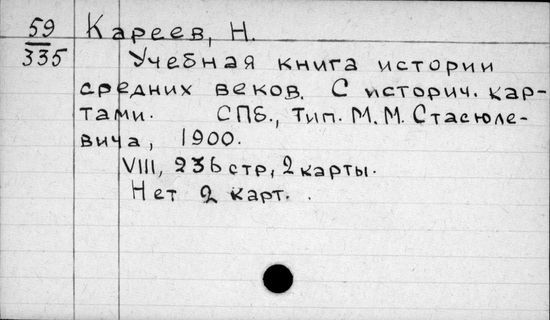 59 Кареев, Н.
335 Учебная книга истории
средних веков. С историч. кар-
тами. СПб., тип. М.М. Стасюле-
вича, 1900.
VIII, 236 стр, 2 карты.
Нет 2 карт.